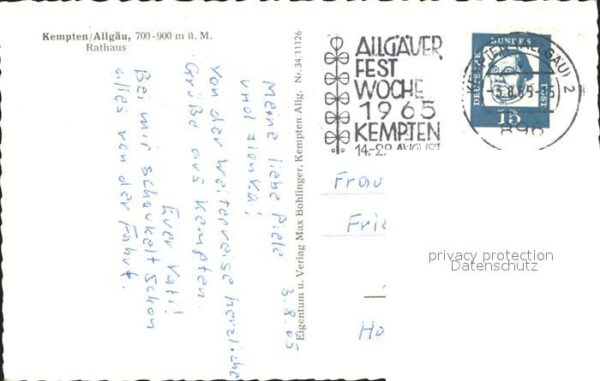 Kempten/Allgäu, 700-900 m ü. M.
Rathaus
ALLGÄUER
FEST
WOCHE
1965
KEMPTEN
14.-22. AUGUST
DEUTSCHE BUNDESPOST
15
KEMPTEN (ALLGÄU) 2
3.8.65
896
Eigentum u. Verlag Max Bohlinger, Kempten Allg. Nr. 34/11126
3.8.65
Meine liebe Piele
und
von der Weiterreise herzliche
Grüße aus Kempten.
Euer Vati!
Bei mir schaukelt schon
alles von der Fahrt.
Frau
Frie
Ho
privacy protection
Datenschutz